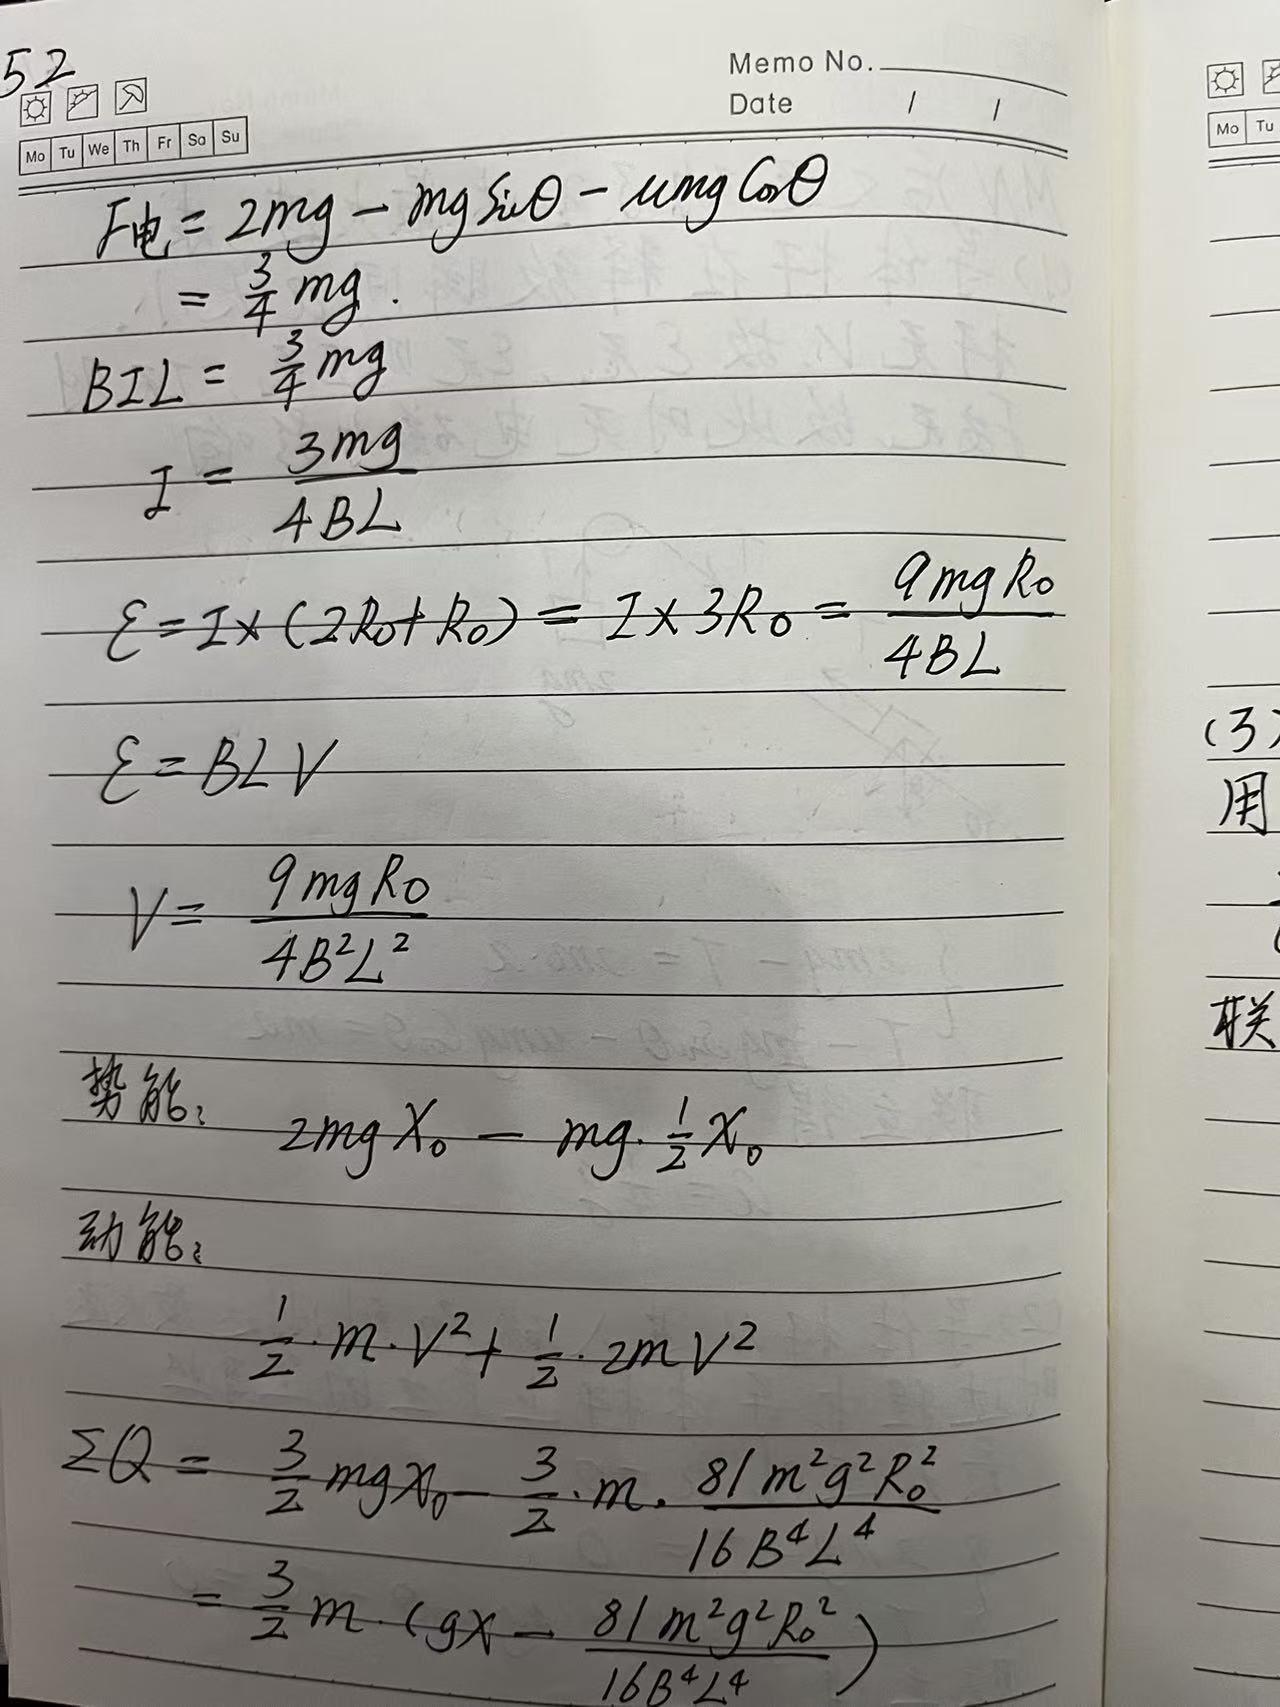 52
Memo No.
Date / /
Mo Tu We Th Fr Sa Su
F电 = 2mg - mg Sinθ - μmg Cosθ
= 3/4 mg .
BIL = 3/4 mg
I = 3mg / 4BL
ε = I × (2R₀ + R₀) = I × 3R₀ = 9mgR₀ / 4BL
ε = BLV
V = 9mgR₀ / 4B²L²
势能: 2mg X₀ - mg · 1/2 X₀
动能:
1/2 · m · V² + 1/2 · 2m V²
ΣQ = 3/2 mgx₀ - 3/2 · m · 81m²g²R₀² / 16B⁴L⁴
= 3/2 m · (gx - 81m²g²R₀² / 16B⁴L⁴)
Mo Tu
(3)
用
联